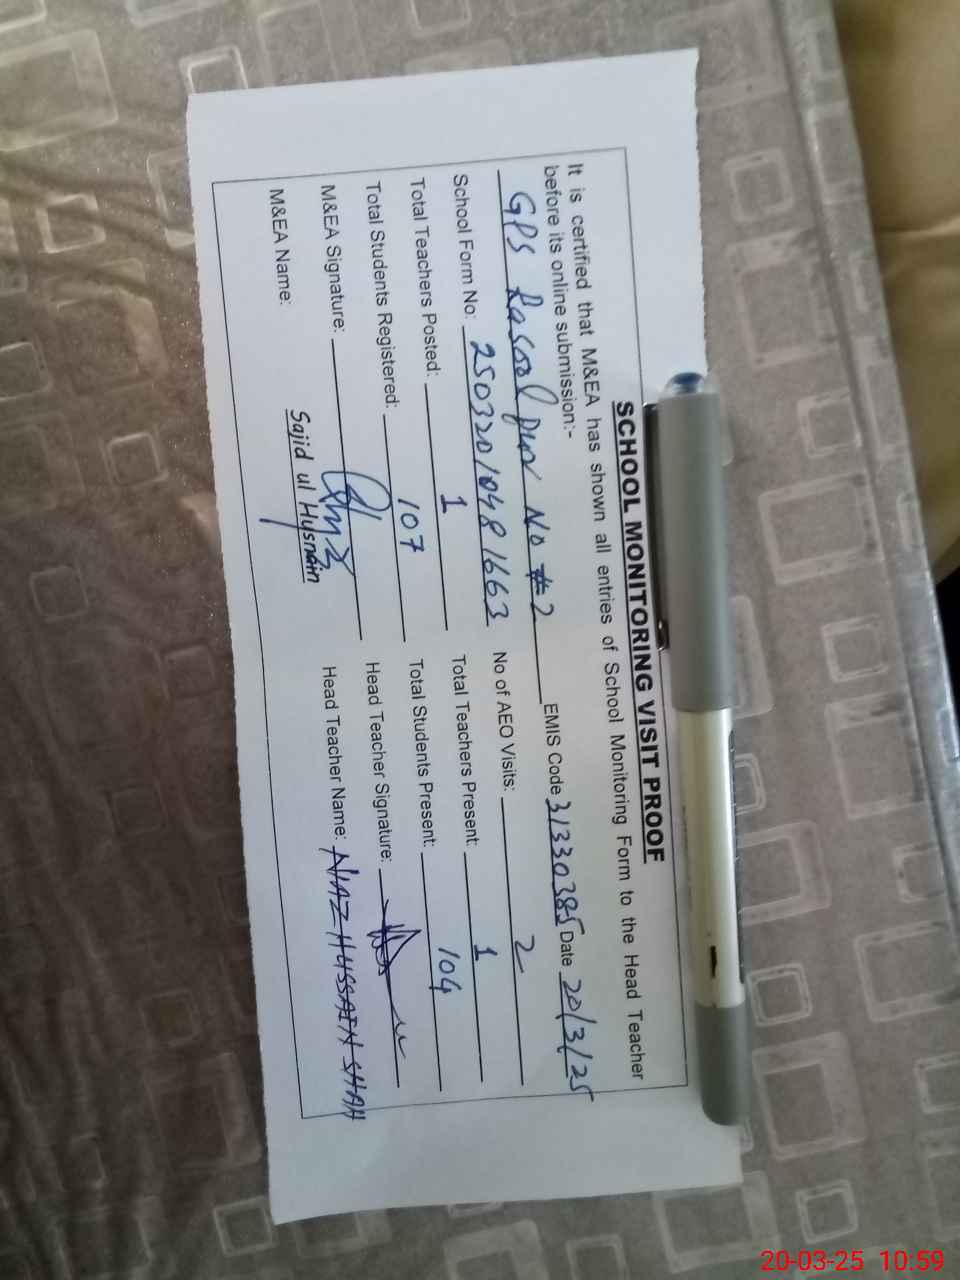 SCHOOL MONITORING VISIT PROOF
It is certified that M&EA has shown all entries of School Monitoring Form to the Head Teacher
before its online submission:-
GPS Rasool pur No # 2 EMIS Code 31330385 Date 20/3/25
School Form No: 2503201048 1663 No of AEO Visits: 2
Total Teachers Posted: 1 Total Teachers Present: 1
Total Students Registered: 107 Total Students Present: 104
M&EA Signature: Head Teacher Signature:
M&EA Name: Sajid ul Hussnain Head Teacher Name: NIAZ HUSSAIN SHAH
20-03-25 10:59